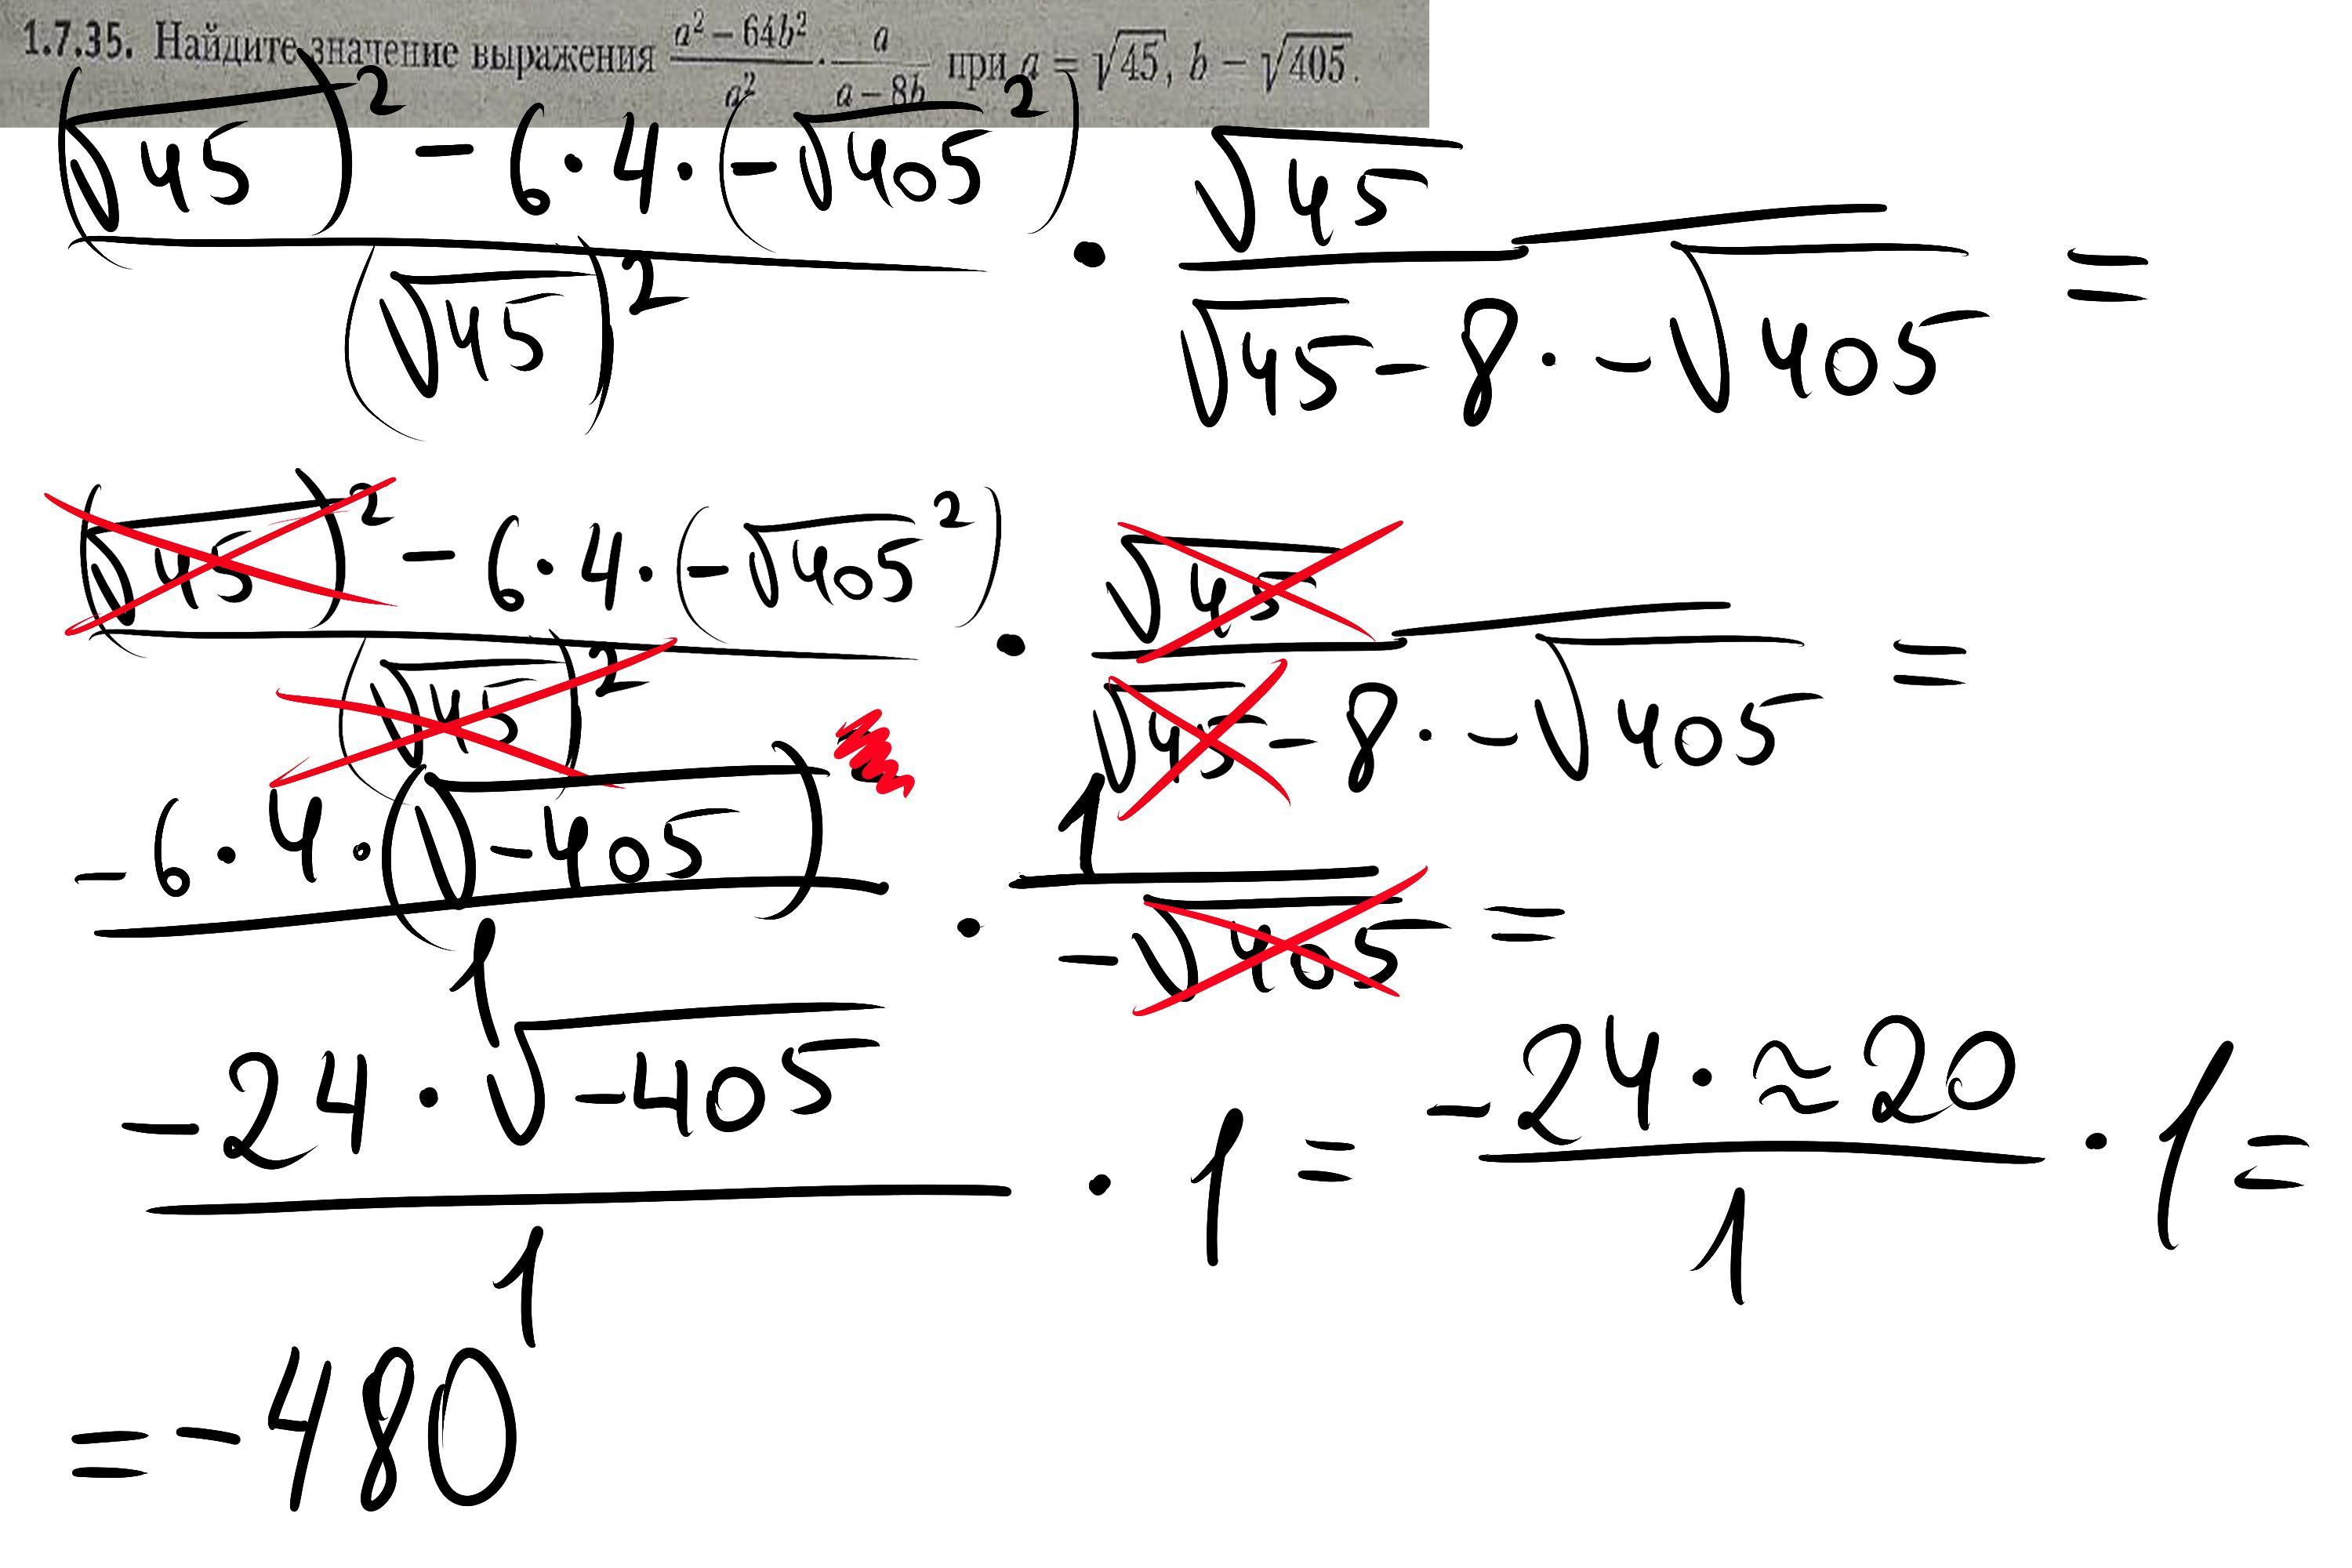 1.7.35. Найдите значение выражения \frac{a² – 64b²}{a²} · \frac{a}{a – 8b} при a = √45, b – √405.
\frac{(√45)² – 6·4·(–√405²)}{(√45)²} · \frac{√45}{√45 – 8 · –√405} =
\frac{(√45)² – 6·4·(–√405²)}{(√45)²} · \frac{√45}{√45 – 8 · –√405} =
\frac{–6·4·(√–405)}{1} · \frac{1}{–√405} =
\frac{–24 · √–405}{1} · 1 = \frac{–24 · ≈20}{1} · 1 =
= –480